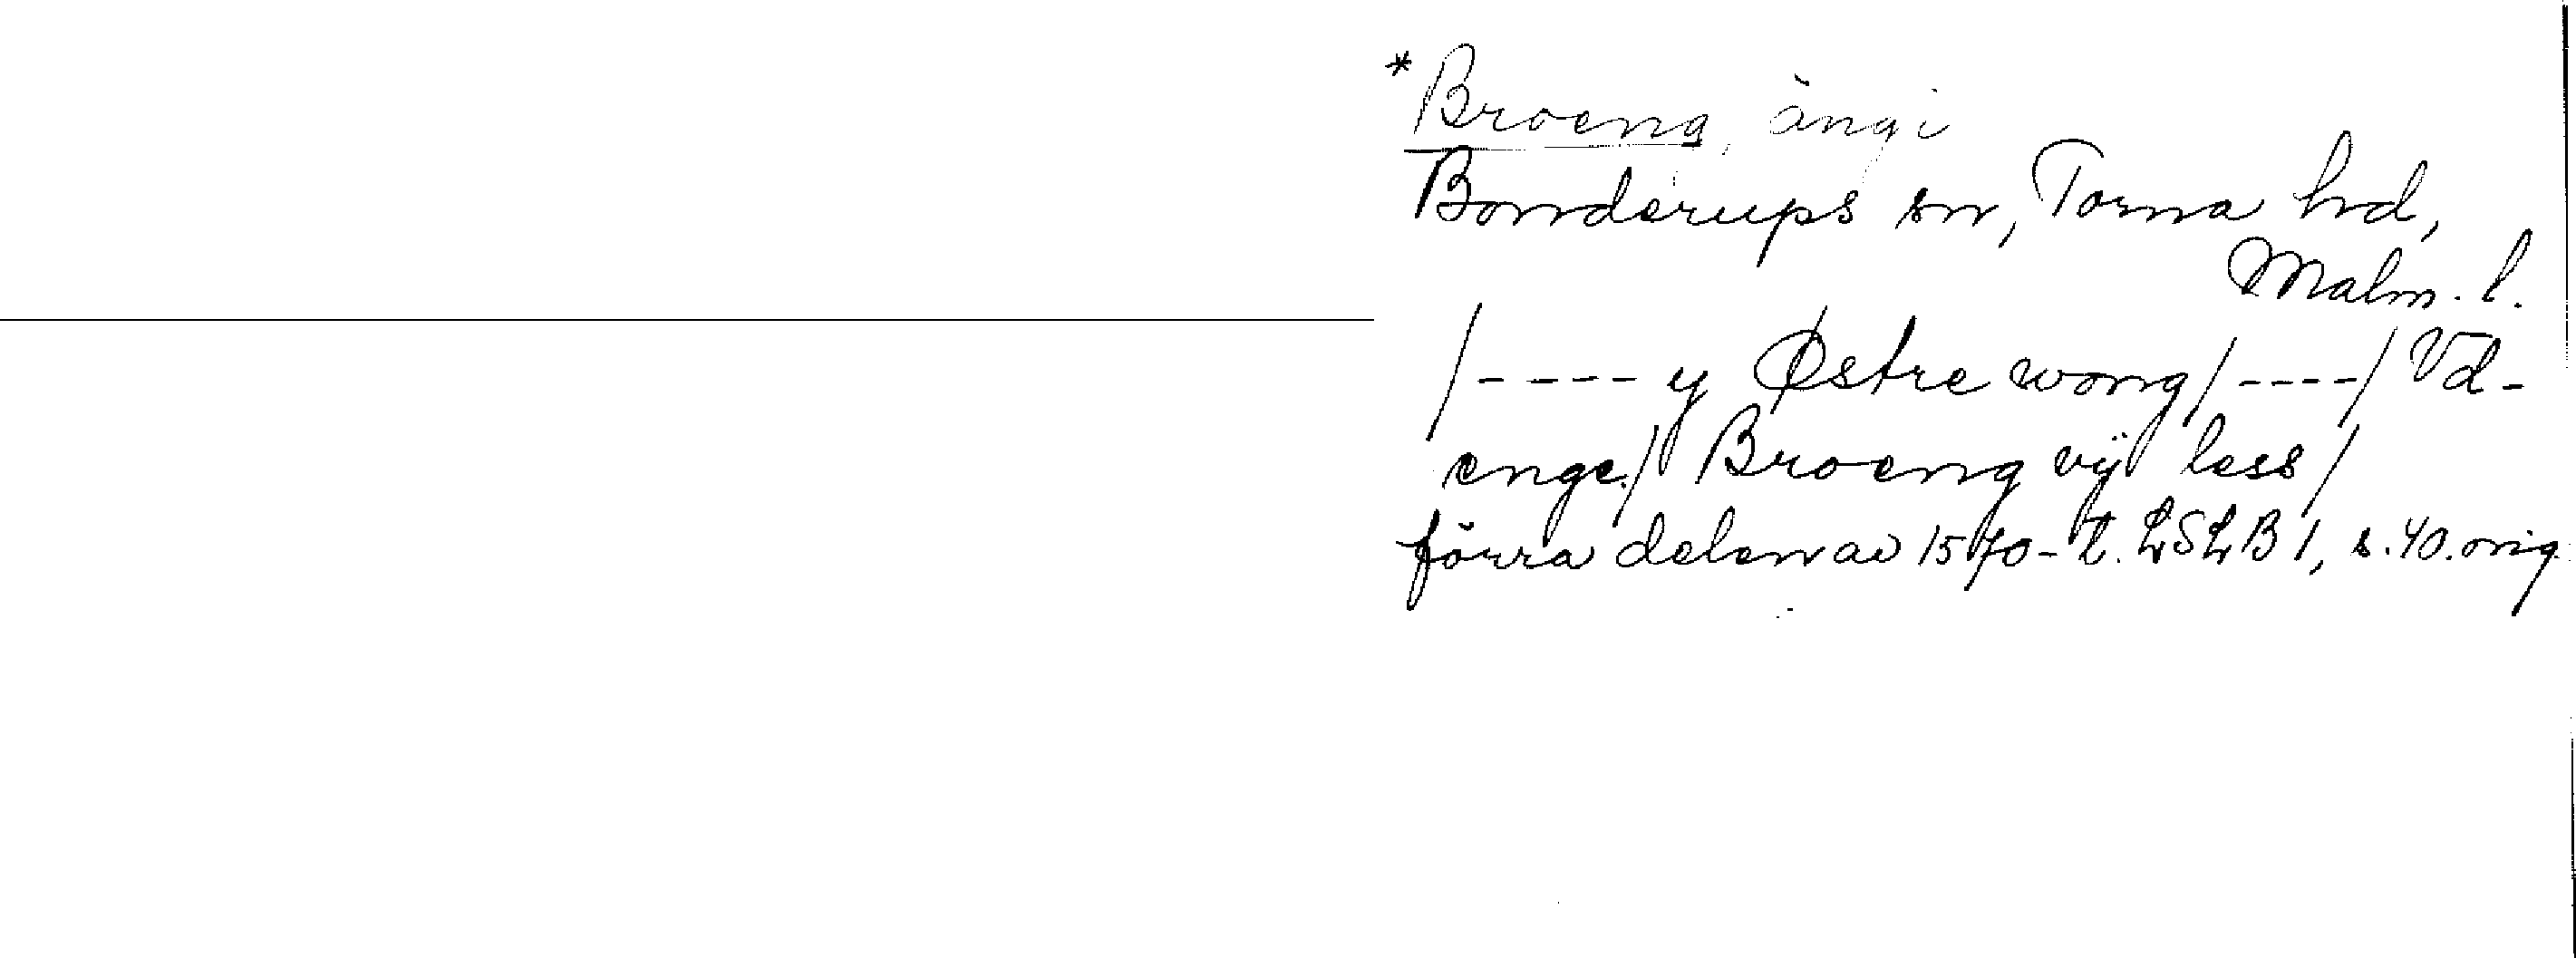 *Broeng, äng i
Bonderups sn, Torna hd,
Malm. l.
/----y Østre wong/----/ Vd-
enge./ Broeng vij less/
förra delen av 1570-t. LSLB 1, s. 40. orig.